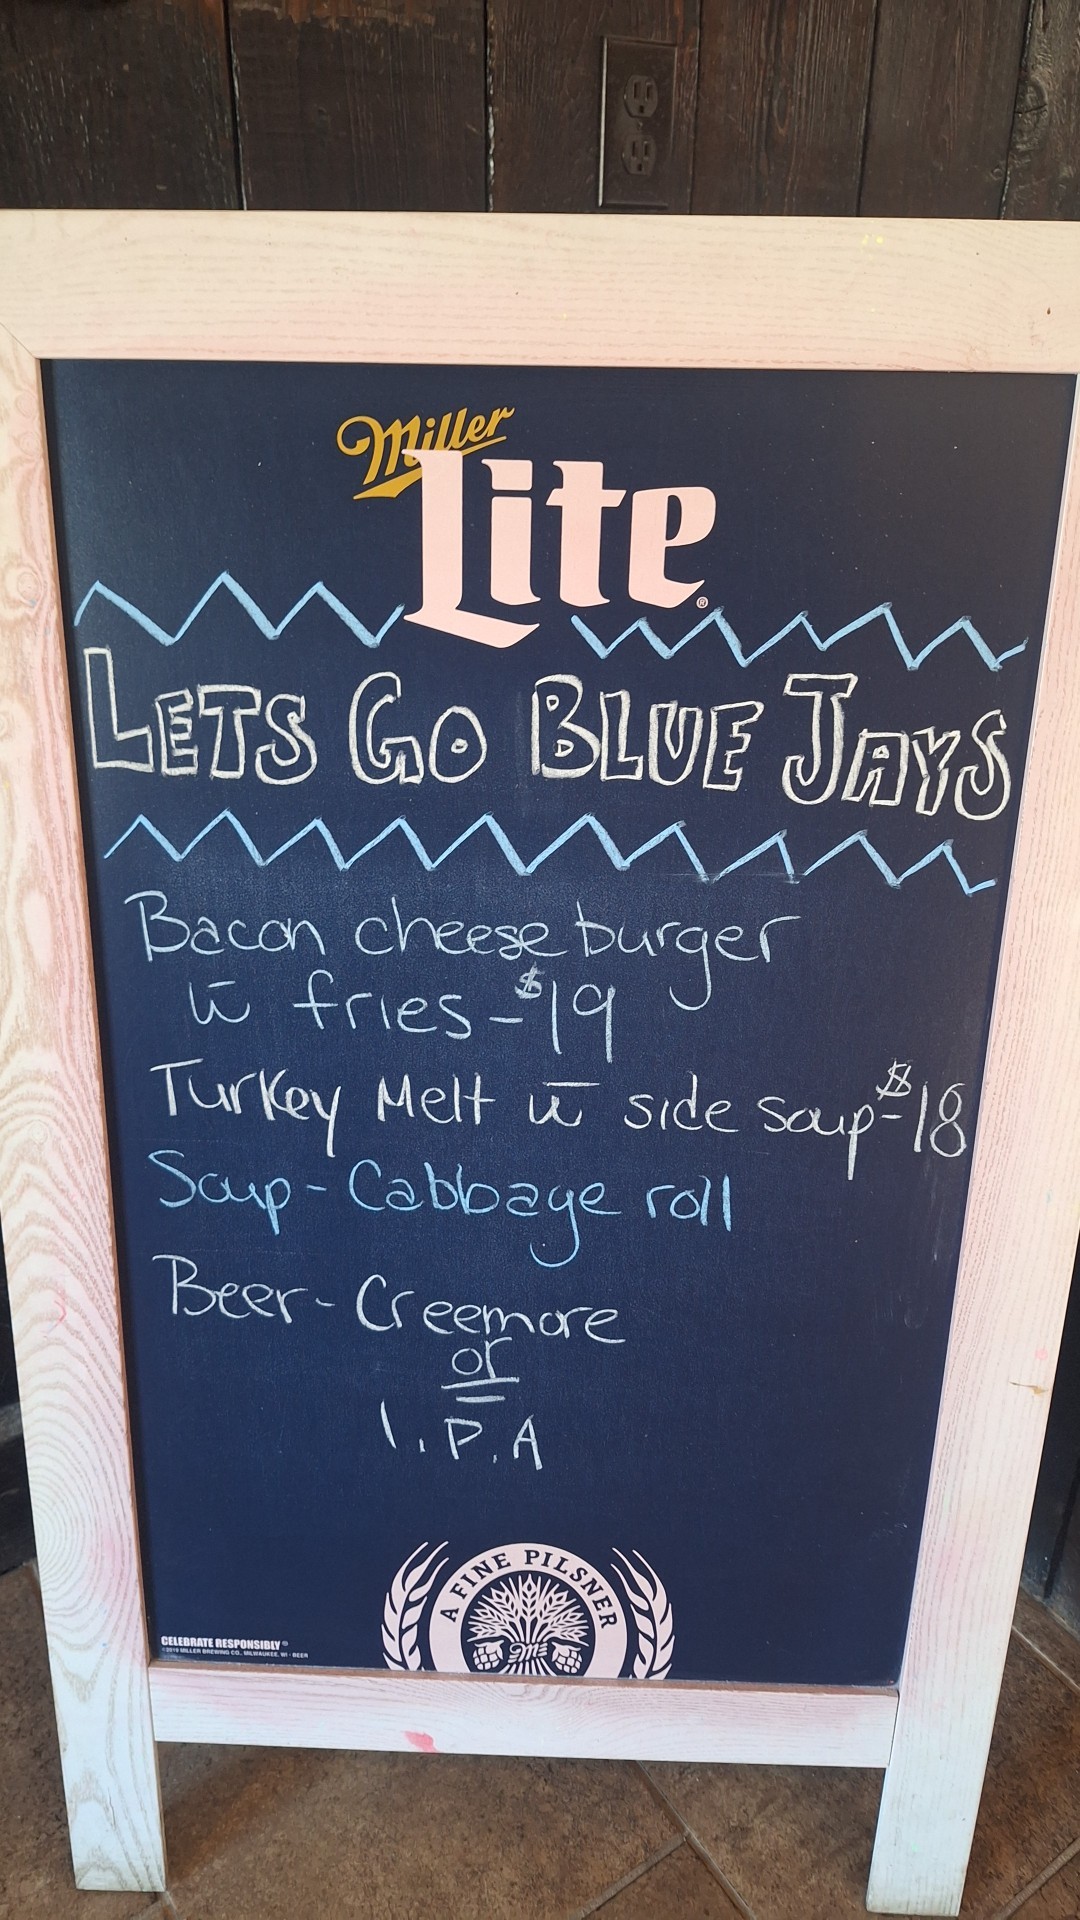 Miller
Lite®
LETS GO BLUE JAYS
Bacon cheeseburger
w̅ fries - $19
Turkey Melt w̅ side soup - $18
Soup - Cabbage roll
Beer - Creemore
or
I.P.A
A FINE PILSNER
CELEBRATE RESPONSIBLY®
©2019 MILLER BREWING CO., MILWAUKEE, WI · BEER